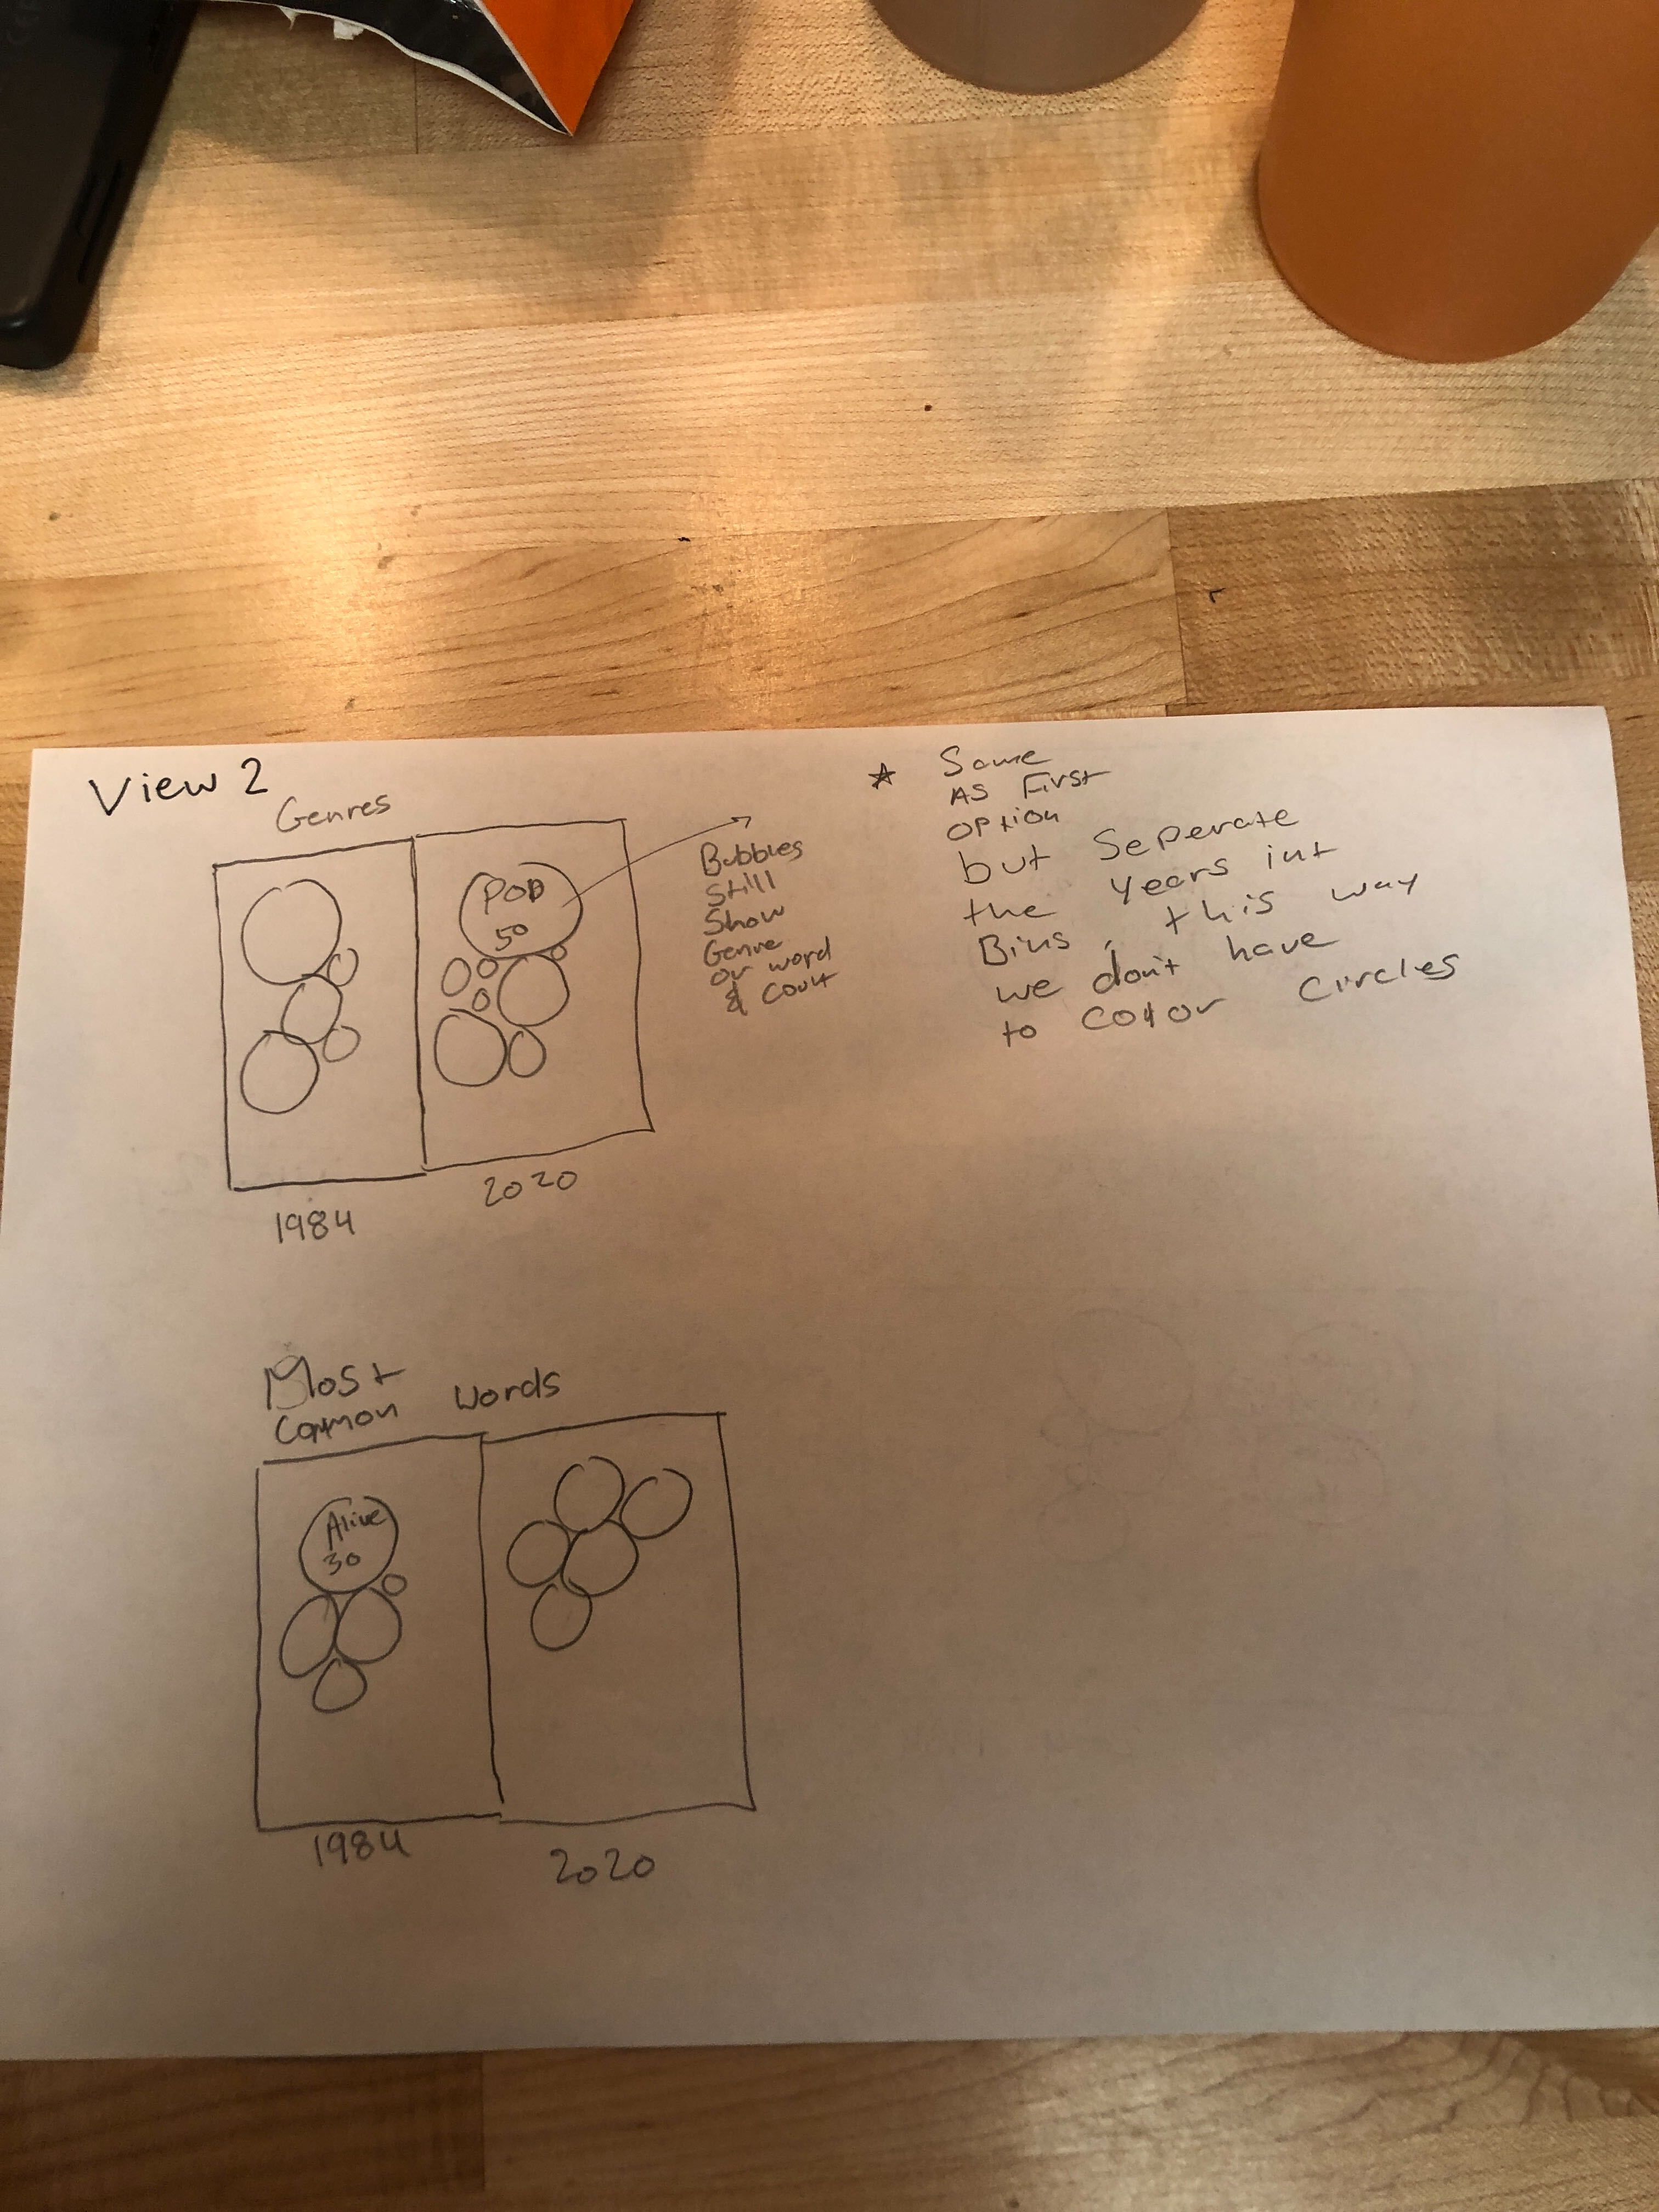 View 2
Genres
POP
50
1984
2020
Bubbles
Still
Show
Genre
or word
& Count
★ Same
AS First
option
but Seperate
the Years int
Bins, this way
we don't have
to color circles
Most
Common words
Alive
30
1984
2020